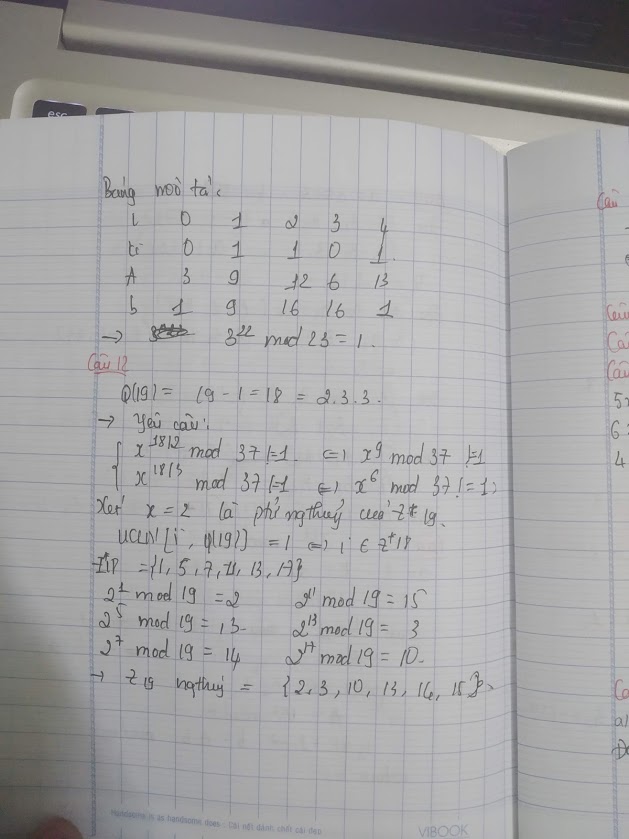 esc
Bảng mô tả:
i 0 1 2 3 4
ki 0 1 1 0 1
A 3 9 12 6 13
b 1 9 16 16 1
→ 3²² mod 23 = 1.
Câu 12
φ(19) = 19 - 1 = 18 = 2.3.3.
→ Yêu cầu:
x^18/2 mod 37 != 1 ⇔ x⁹ mod 37 != 1
x^18/3 mod 37 != 1 ⇔ x⁶ mod 37 != 1
Xét x = 2 là ptử ng thuỷ của Z*19.
UCLN [i, φ(19)] = 1 ⇔ i ∈ Z*18
= {1, 5, 7, 11, 13, 17}
2¹ mod 19 = 2 2¹¹ mod 19 = 15
2⁵ mod 19 = 13 2¹³ mod 19 = 3
2⁷ mod 19 = 14 2¹⁷ mod 19 = 10
→ Z19 ng thuỷ = {2, 3, 10, 13, 14, 15}
Handsome is as handsome does - Cái nết đánh chết cái đẹp
VIBOOK
Câu
Câu
Câu
5
6
4
a